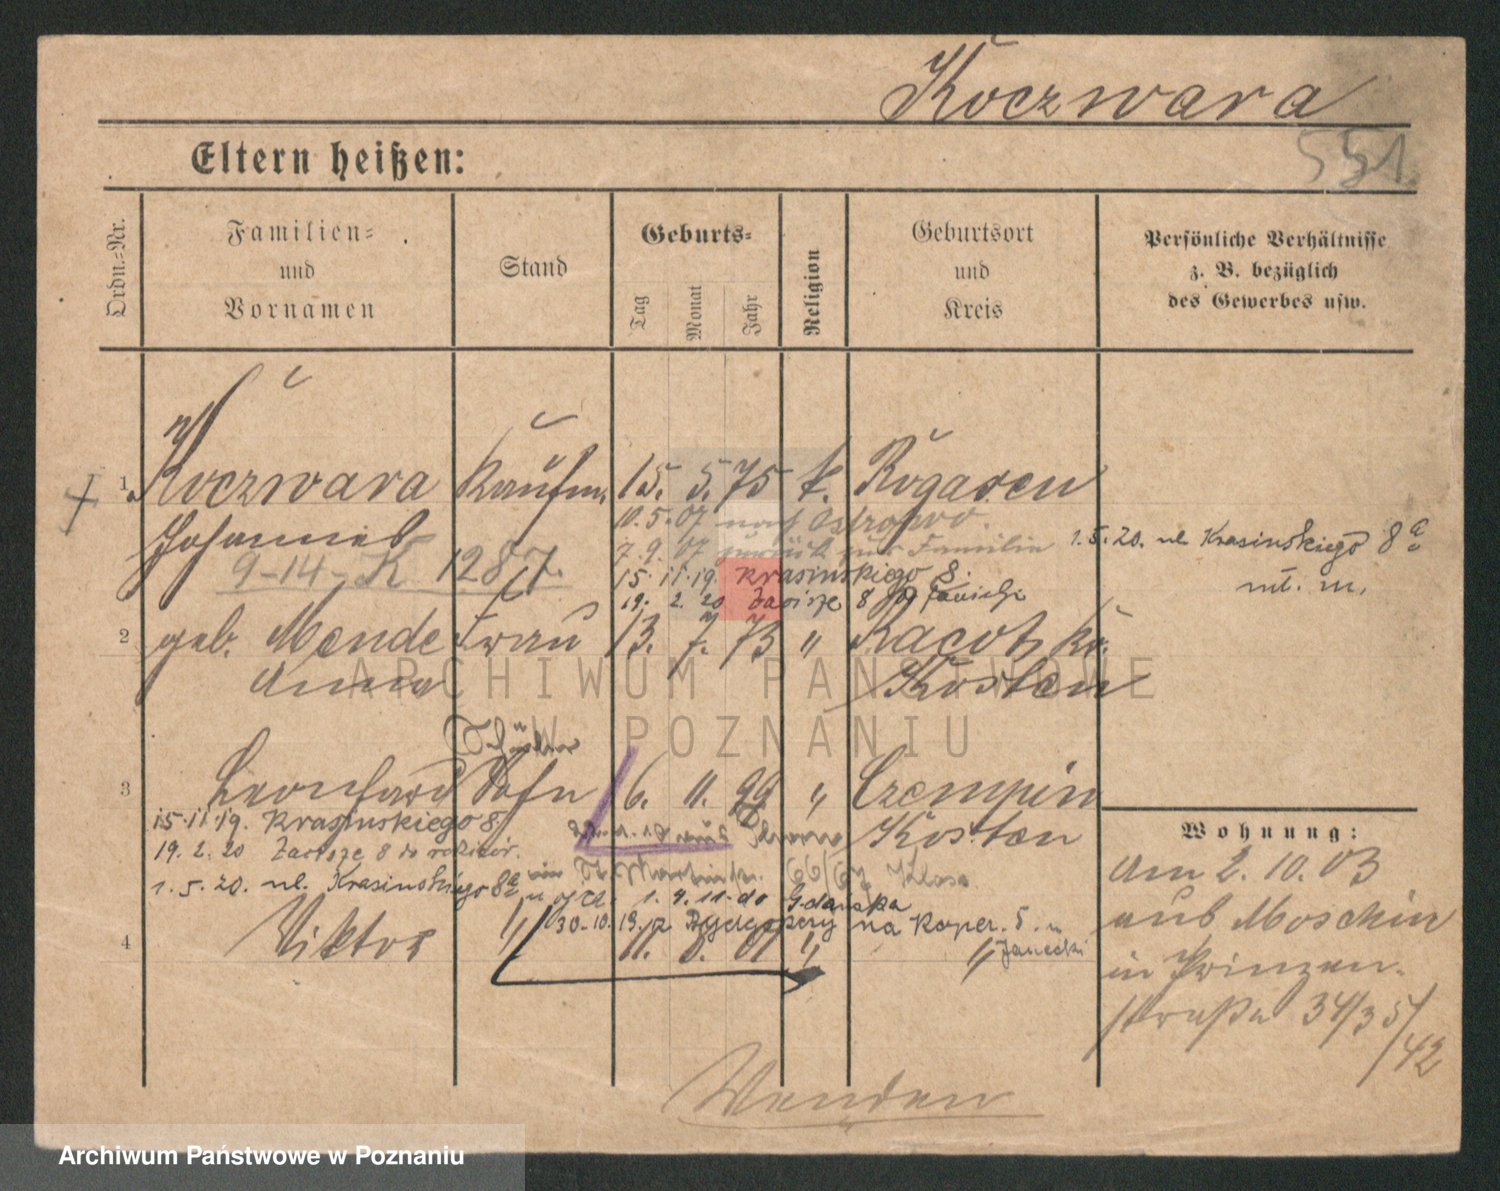 Koczwara
551.
Eltern heißen:
Ordn.-Nr.
Familien-
und
Vornamen
Stand
Geburts-
Tag
Monat
Jahr
Religion
Geburtsort
und
Kreis
Persönliche Verhältnisse
z. B. bezüglich
des Gewerbes usw.
1 Koczwara Kaufm. 15. 5. 75 k. Rogasen
Johannes
10.5.07 nach Ostrowo.
7.9.07 zurück zur Familie
9-14-K 1287.
15.11.19. Krasinskiego 8.
19. 2. 20 Zacisze 8
1.5.20. ul. Krasinskiego 8a
2 geb. Mende Frau 13. 7. 73 " Racot, Kr.
Anna Kosten
Schüler
3 Leonhard Sohn 6. 11. 99 " Czempin
Kosten
15.11.19. Krasinskiego 8
19. 2. 20 Zacisze 8 do rodziców.
1. 5. 20. ul. Krasinskiego 8a
1. 4. 11. do Gdańska
30.10.19. z Bydgoszczy na Koper. 5. u
Janecki
4 Viktor " 11. 8. 01 " "
Wohnung:
Am 2.10.03
aus Moschin
in Prinzen-
straße 34/35
/42
Wenden
ARCHIWUM PAŃSTWOWE
W POZNANIU
Archiwum Państwowe w Poznaniu